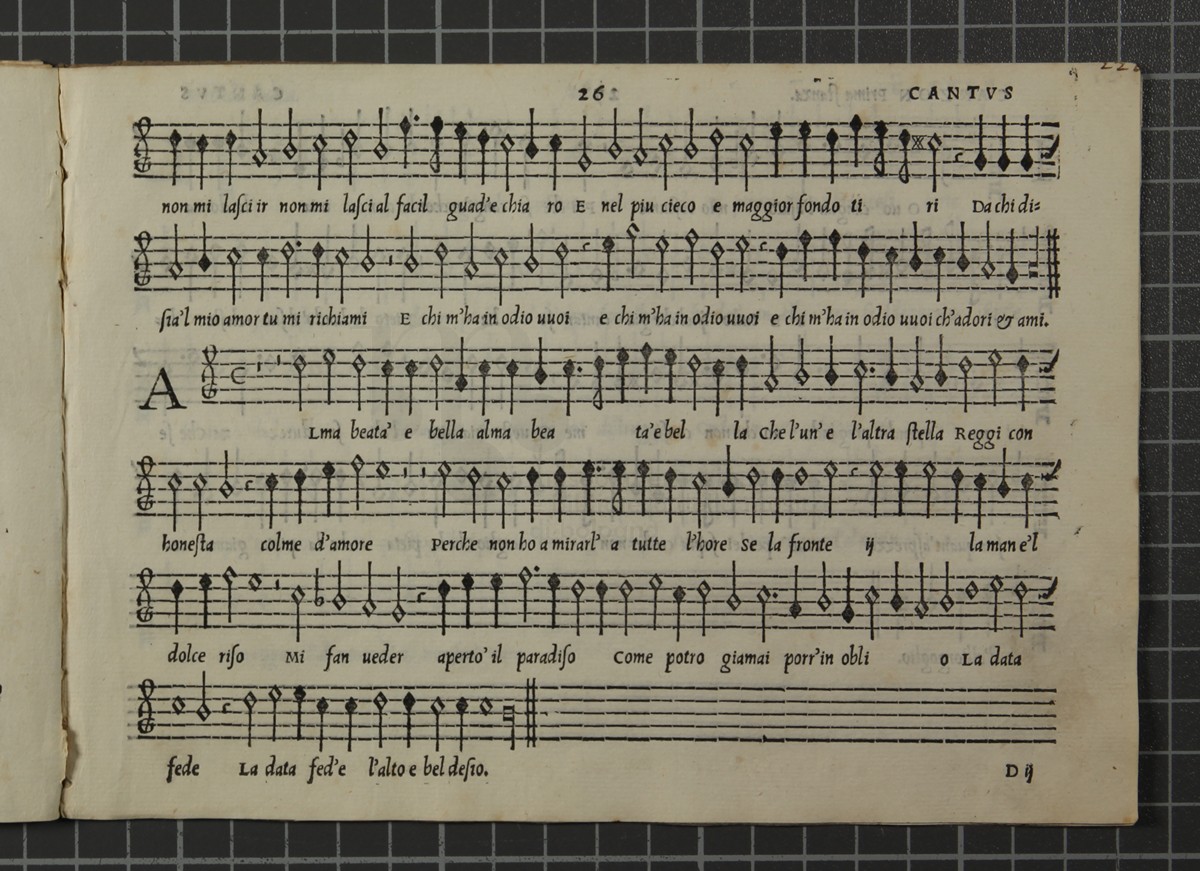 26 CANTVS
non mi laſci ir non mi laſci al facil guad'e chia ro E nel piu cieco e maggior fondo ti ri Da chi di=
ſia'l mio amor tu mi richiami E chi m'ha in odio uuoi e chi m'ha in odio uuoi e chi m'ha in odio uuoi ch'adori & ami.
A Lma beata' e bella alma bea ta'e bel la Che l'un' e l'altra ſtella Reggi con
honeſta colme d'amore Perche non ho a mirarl' a tutte l'hore Se la fronte ij la man e'l
dolce riſo Mi fan ueder aperto' il paradiſo Come potro giamai porr'in obli o La data
fede La data fed'e l'alto e bel deſio.
D ij